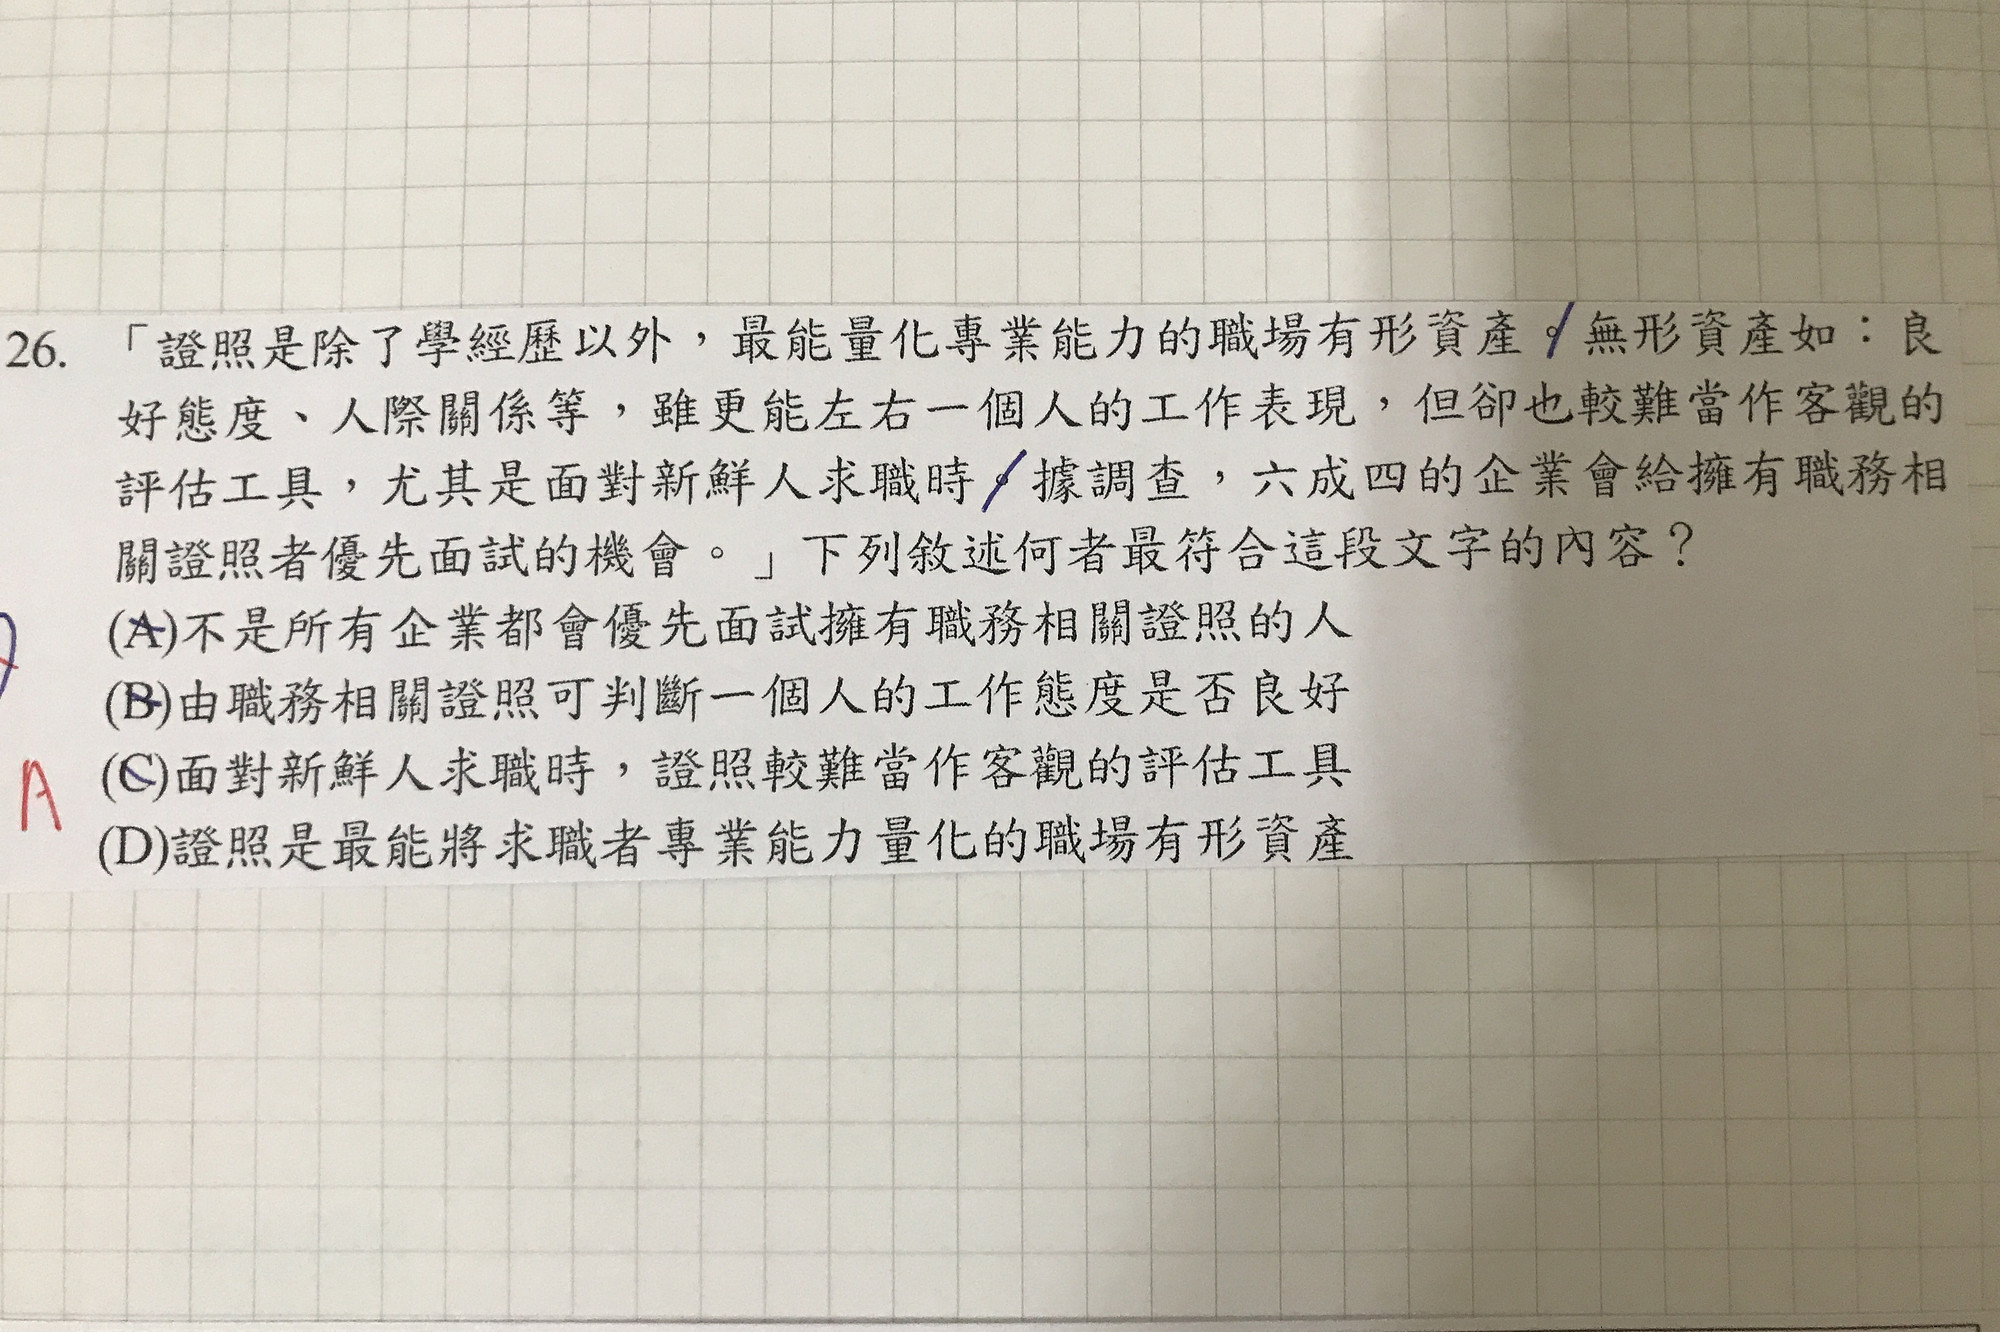 26. 「證照是除了學經歷以外，最能量化專業能力的職場有形資產。無形資產如：良
好態度、人際關係等，雖更能左右一個人的工作表現，但卻也較難當作客觀的
評估工具，尤其是面對新鮮人求職時。據調查，六成四的企業會給擁有職務相
關證照者優先面試的機會。」下列敘述何者最符合這段文字的內容？
(A)不是所有企業都會優先面試擁有職務相關證照的人
(B)由職務相關證照可判斷一個人的工作態度是否良好
(C)面對新鮮人求職時，證照較難當作客觀的評估工具
A
(D)證照是最能將求職者專業能力量化的職場有形資產